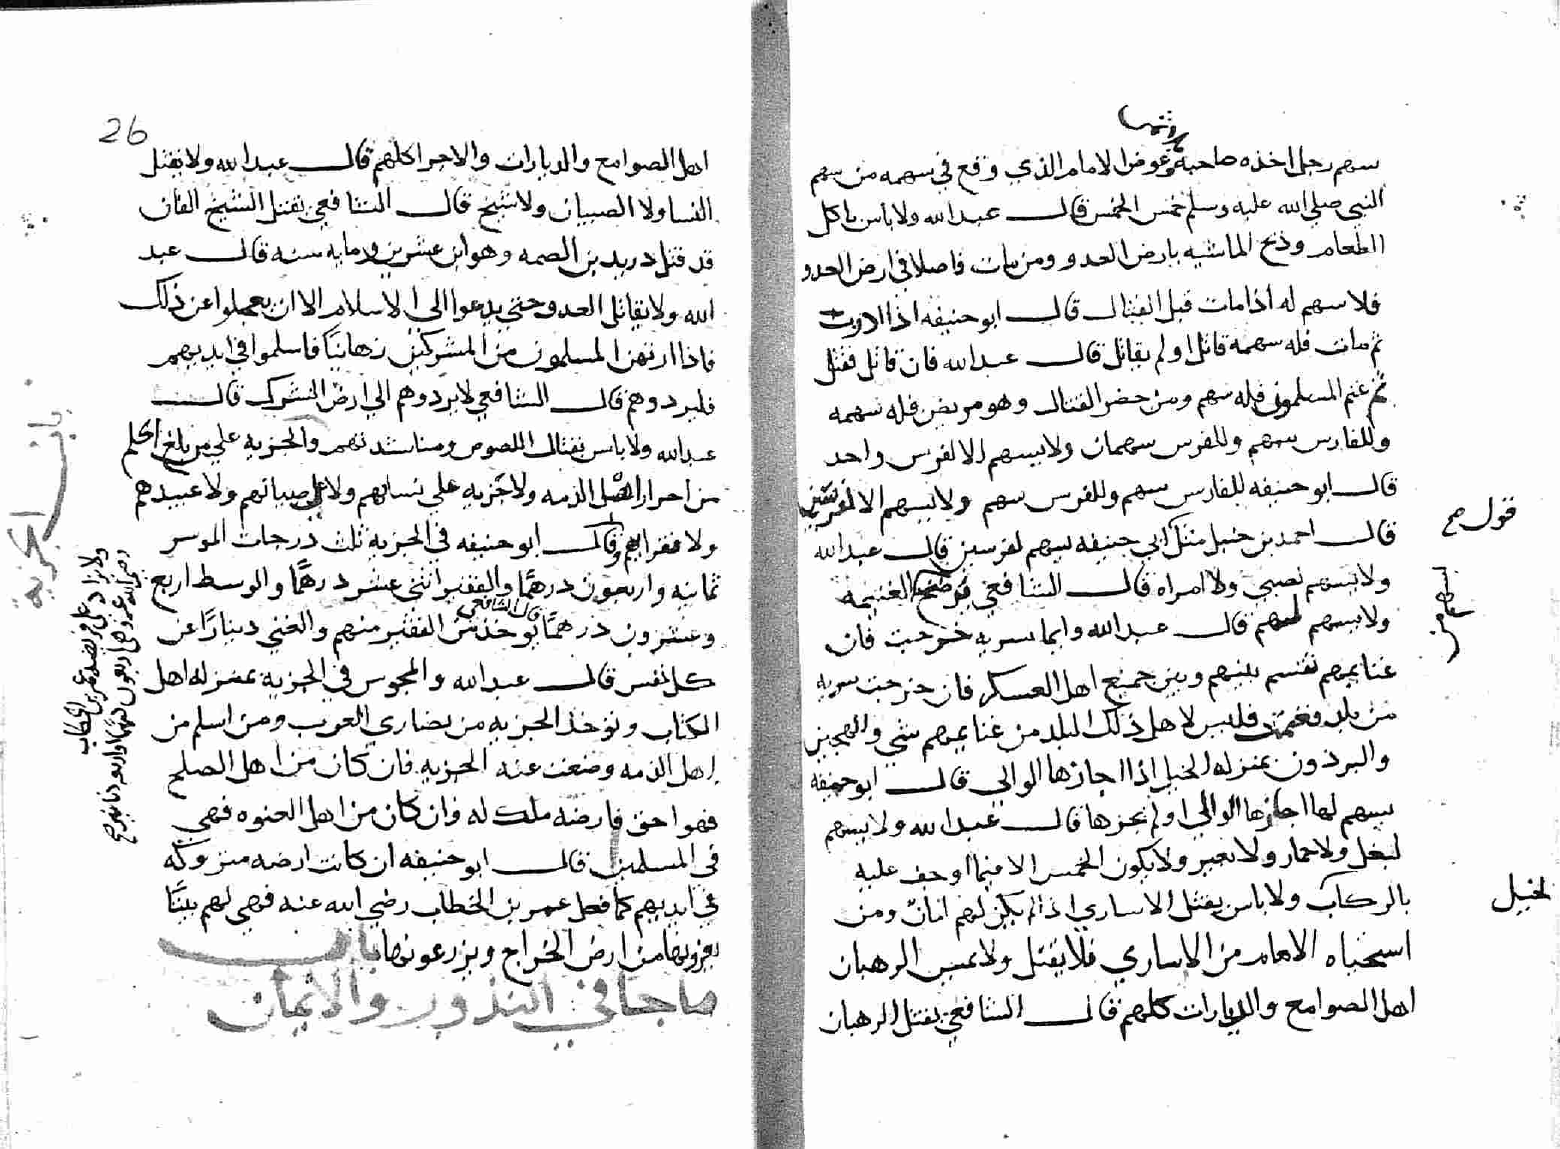 سهم رجل اخذه صاحبه وعوض الامام الذي وقع في سهمه من سهم
النبي صلي الله عليه وسلم خمس الخمس قال عبد الله ولا باس باكل
الطعام وذبح الماشيه بارض العدو ومن مات فاصلا في ارض العدو
فلا سهم له اذا مات قبل القتال قال ابو حنيفه اذا
ثم مات فله سهمه قاتل او لم يقاتل قال عبد الله فان قاتل فقتل
ثم غنم المسلمون فله سهم ومن حضر القتال وهو مريض فله سهمه
وللفارس سهم وللفرس سهمان ولا يسهم الا لفرس واحد
قال ابو حنيفه للفارس سهم وللفرس سهم ولا يسهم الا لفرسين
قال احمد بن حنبل مثل ابي حنيفه يسهم لفرسين قال عبد الله
ولا يسهم لصبي ولا امراه قال الشافعي الغنيمه
ولا يسهم لهم قال عبد الله وايما سريه خرجت فان
غنايمهم تقسم بينهم وبين جميع اهل العسكر فان خرجت سريه
من بلد فغنمت فليس لاهل ذلك البلد من غنايمهم شي والهجين
والبرذون بمنزله الخيل اذا اجازها الوالي قال ابو حنيفه
يسهم لها اجازها الوالي او لم يجزها قال عبد الله ولا يسهم
لبغل ولا حمار ولا بعير ولا يكون الخمس الا فيما اوجف عليه
بالركاب ولا باس بقتل الاساري اذا لم يكن لهم امان ومن
استحياه الامام من الاساري فلا يقتل ولا الرهبان
اهل الصوامع والديارات كلهم قال الشافعي يقتل الرهبان
قول صح
الخيل
26
اهل الصوامع والديارات والاجرا كلهم قال عبد الله ولا يقتل
النسا ولا الصبيان ولا شيخ قال الشافعي يقتل الشيخ الفان
قد قتل دريد بن الصمه وهو ابن عشرين ومايه سنه قال عبد
الله ولا يقاتل العدو حتي يدعوا الي الاسلام الا ان يعجلوا عن ذلك
فاذا ارتهن المسلمون من المشركين رهاينا فاسلموا في ايديهم
فليردوهم قال الشافعي لا يردوهم الي ارض الشرك قال
عبد الله ولا باس بقتال اللصوص ومناشدتهم والجزيه علي من بلغ الحلم
من احرار اهل الذمه ولا جزيه علي نسائهم ولا علي صبيانهم ولا عبيدهم
ولا فقرايهم وقال ابو حنيفه في الجزيه ثلث درجات الموسر
ثمانيه واربعون درهما والفقير اثني عشر درهما والوسط اربع
وعشرون درهما قال الشافعي يوخذ من الفقير منهم والغني دينارا عن
كل نفس قال عبد الله والمجوس في الجزيه بمنزله اهل
الكتاب وتوخذ الجزيه من نصاري العرب ومن اسلم من
اهل الذمه وضعت عنه الجزيه فان كان من اهل الصلح
فهو احق فارضه ملك له وان كان من اهل العنوه فهي
في المسلمين قال ابو حنيفه ان كانت ارضه متروكه
في ايديهم كما فعل عمر بن الخطاب رضي الله عنه فهي لهم
من ارض الخراج ويزرعونها باب
ما جا في النذور والايمان
باب الجزية
ولا يزاد علي فرض عمر بن الخطاب
رضي الله عنه وهي اربعون درهما او اربعه دنانير صح